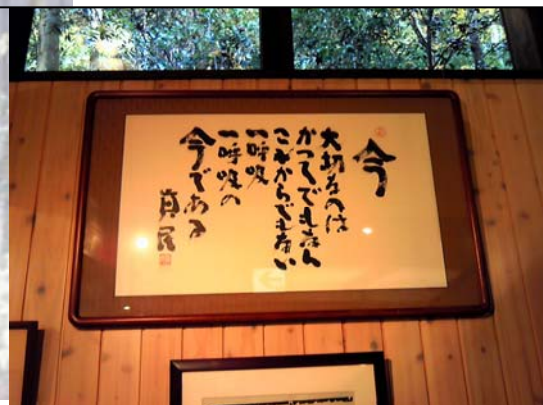 今
大切なのは
かつてでもなく
これからでもない
一呼吸
一呼吸の
今である
真民